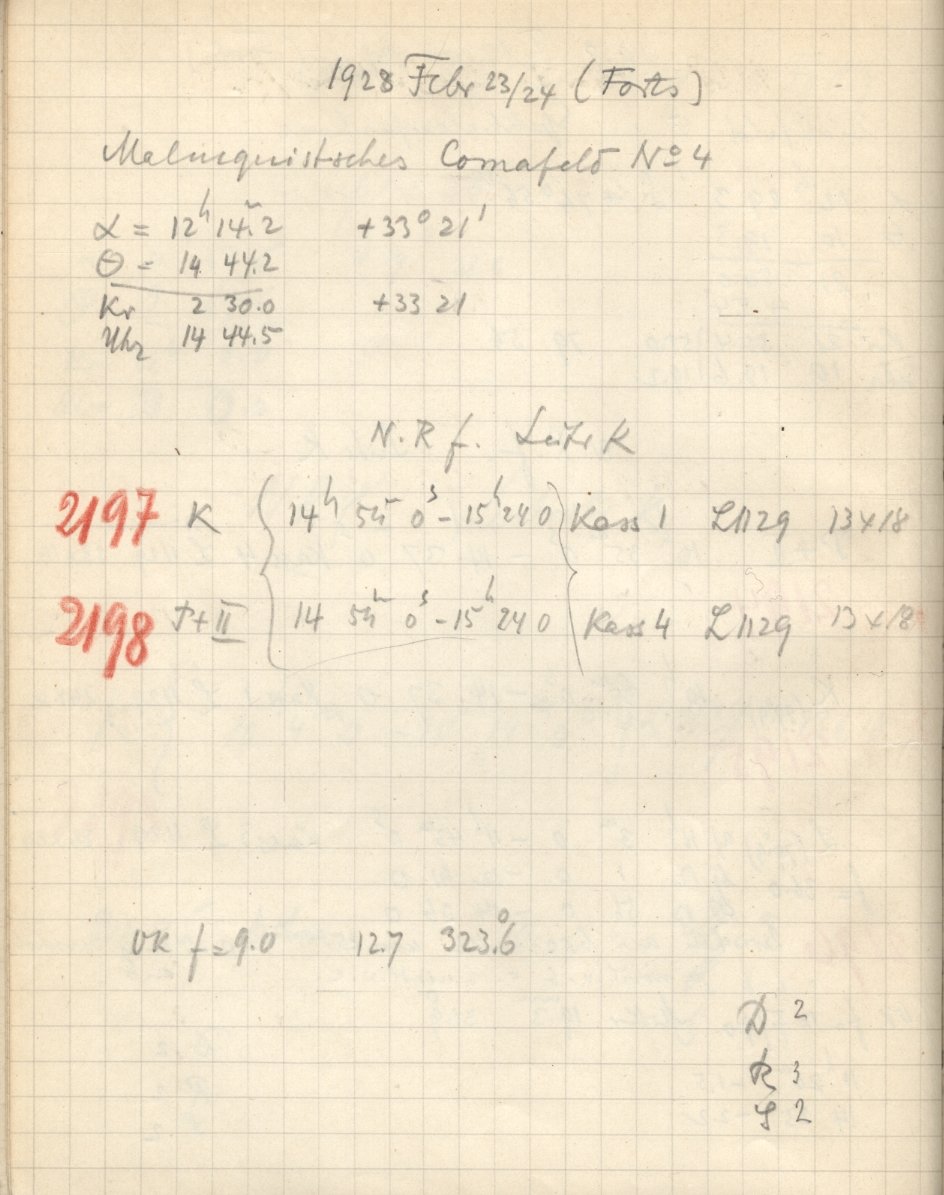 1928 Febr 23/24 (Forts)
Malmquistsches Comafeld No 4
α = 12h 14m.2 +33° 21'
Θ = 14 44.2
Kr 2 30.0 +33 21
Uhr 14 44.5
N.R f. Leitr K
2197 K 14h 54m 0s - 15h 24 0 Kass 1 L1129 13x18
2198 T+II 14 54m 0s - 15h 24 0 Kass 4 L1129 13x18
VK f=9.0 12.7 323°.6
D 2
R 3
S 2